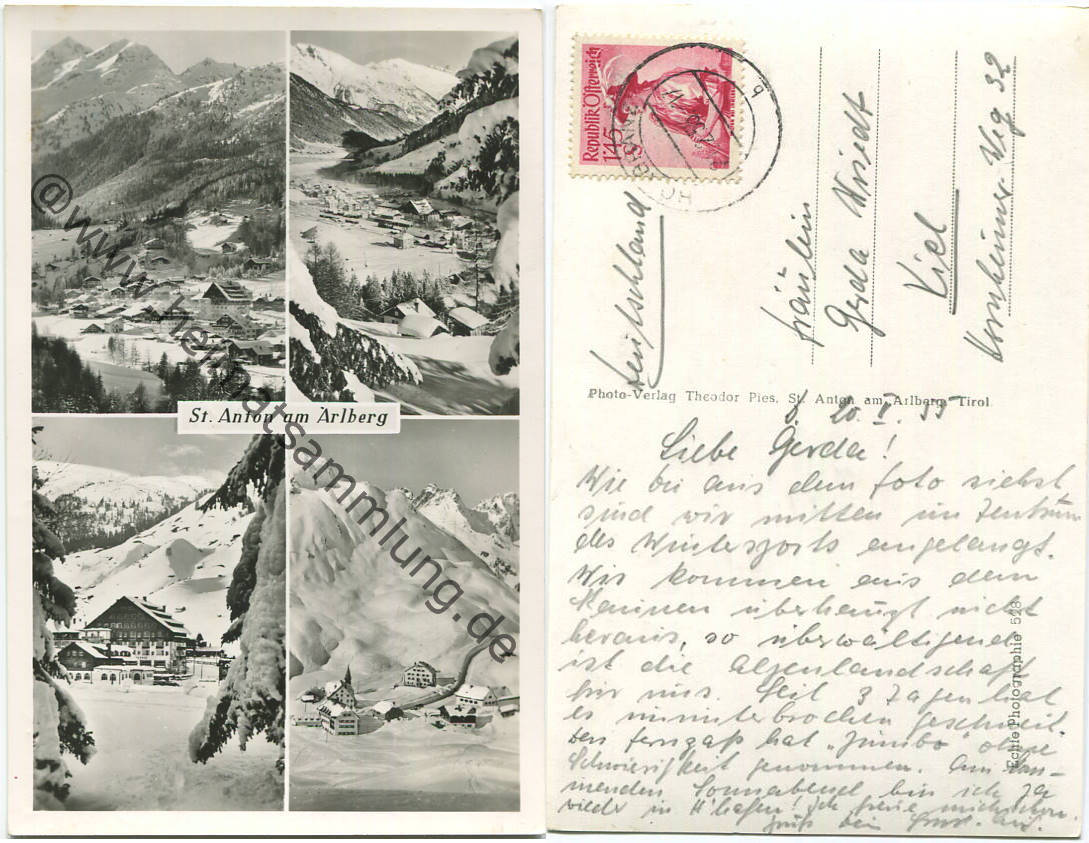 St. Anton am Arlberg
@www.heimatsammlung.de
Republik Österreich
145
Deutschland
Fräulein
Gerda
Kiel
Weg 32
Photo-Verlag Theodor Pies, St. Anton am Arlberg, Tirol
20. I. 55
Liebe Gerda!
Wie du aus dem Foto siehst
sind wir mitten im Zentrum
des Wintersports angelangt.
Wir kommen aus dem
Staunen überhaupt nicht
heraus, so überwältigend
ist die Alpenlandschaft
für uns. Seit 3 Tagen hat
es ununterbrochen geschneit.
Den Fernpaß hat "Jumbo" ohne
Schwierigkeit genommen. Am kom-
menden Sonnabend bin ich ja
wieder in H'hafen! Ich freue mich schon.
Gruß dein
Echte Photographie 528